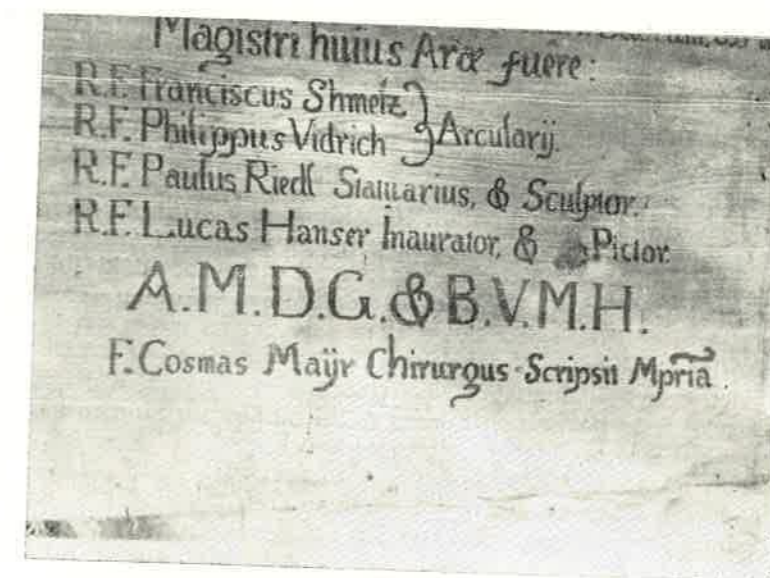 Magistri huius Aræ fuêre:
R.F. Franciscus Shmeiz
R.F. Philippus Vidrich } Arcularij.
R.F. Paulus Riedl Statuarius, & Sculptor.
R.F. Lucas Hanser Inaurator, & Pictor.
A.M.D.G. & B.V.M.H.
F. Cosmas Maÿr Chirurgus Scripsit Mpria.